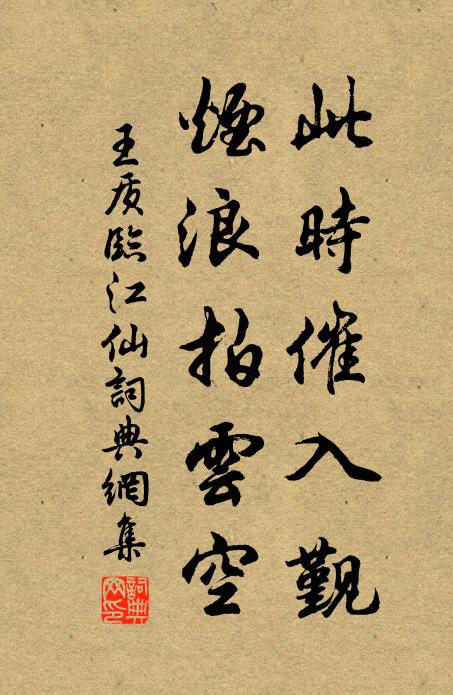 此時催入覲
煙浪拍雲空
王质臨江仙詞典網集
詞典网印